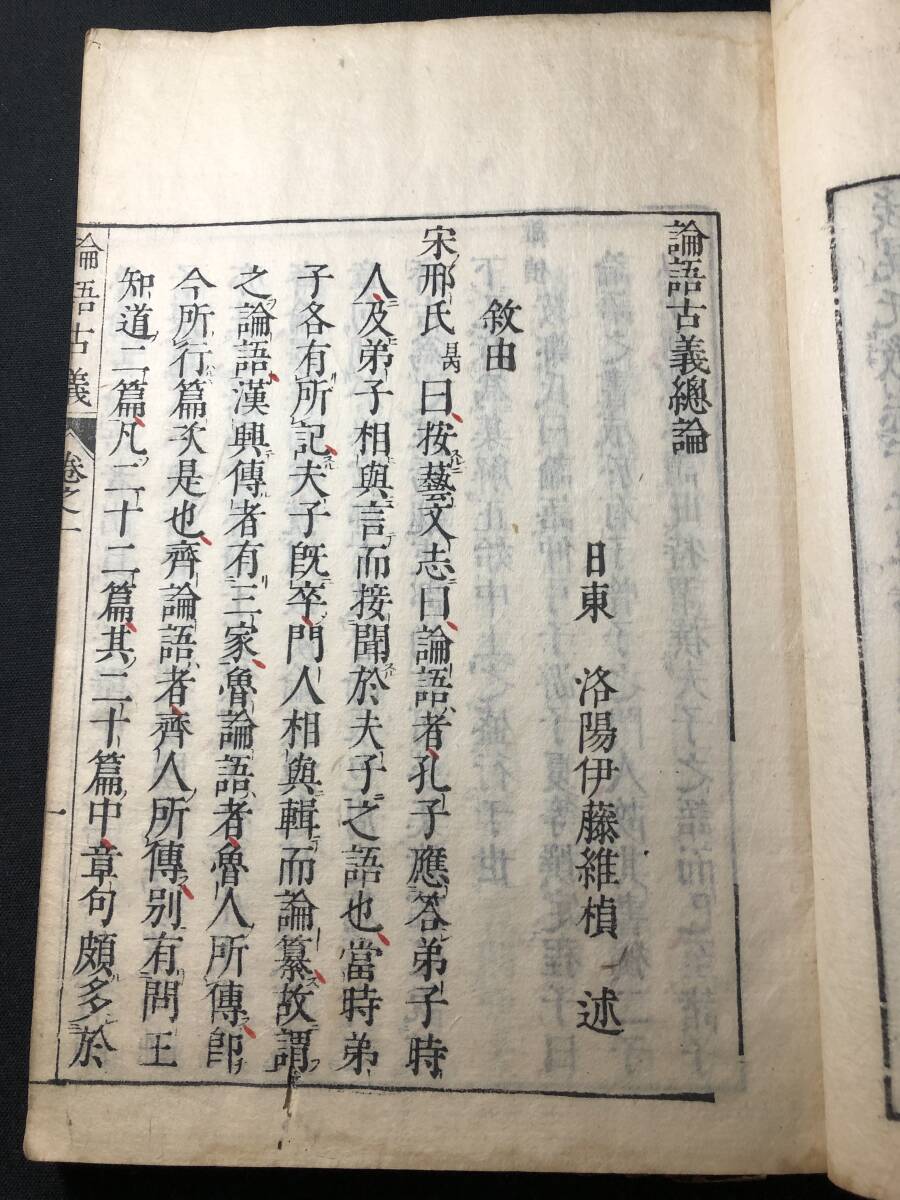 論語古義總論
日東 洛陽伊藤維楨 述
敘由
宋邢氏昺曰按藝文志曰論語者孔子應答弟子時
人及弟子相與言而接聞於夫子之語也當時弟
子各有所記夫子既卒門人相與輯而論纂故謂
之論語漢興傳者有三家魯論語者魯人所傳即
今所行篇次是也齊論語者齊人所傳別有問王
知道二篇凡二十二篇其二十篇中章句頗多於
論語古義 卷之一 一